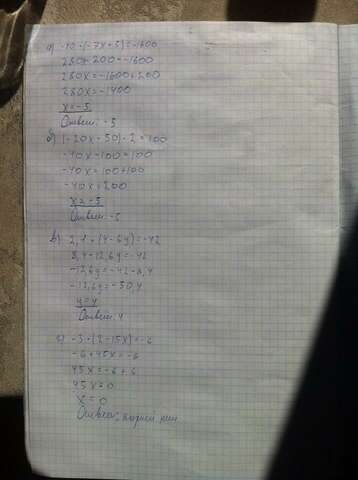 а) -40·(-7x+5)=-1600
280x-200=-1600
280x=-1600+200
280x=-1400
x=-5
Ответ: -5
б) (-20x-50)·2=100
-40x-100=100
-40x=100+100
-40x=200
x=-5
Ответ: -5
в) 2,1·(4-6y)=-42
8,4-12,6y=-42
-12,6y=-42-8,4
-12,6y=-50,4
y=4
Ответ: 4
г) -3·(2-15x)=-6
-6+45x=-6
45x=-6+6
45x=0
x=0
Ответ: корней нет